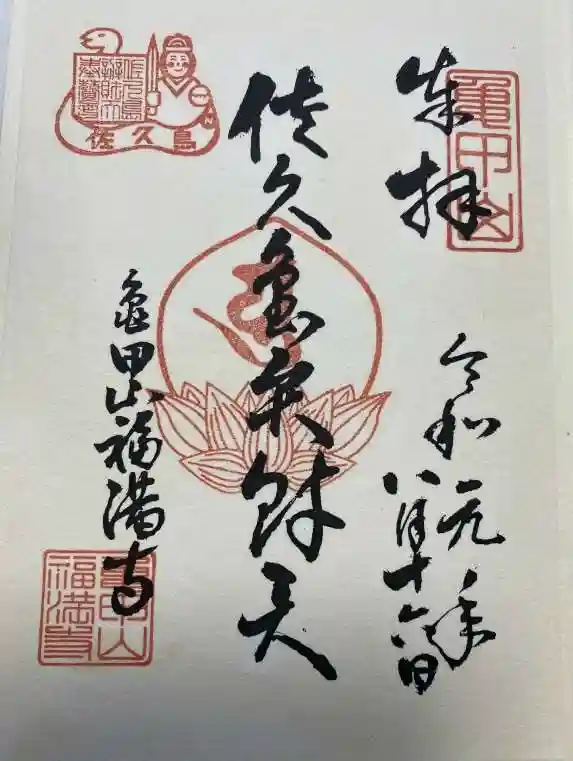 奉拝
亀甲山
令和元年
八月十六日
佐久島弁財天
佐久島
辨財天
奉賛会
佐久島
亀甲山福満寺
亀甲山
福満寺